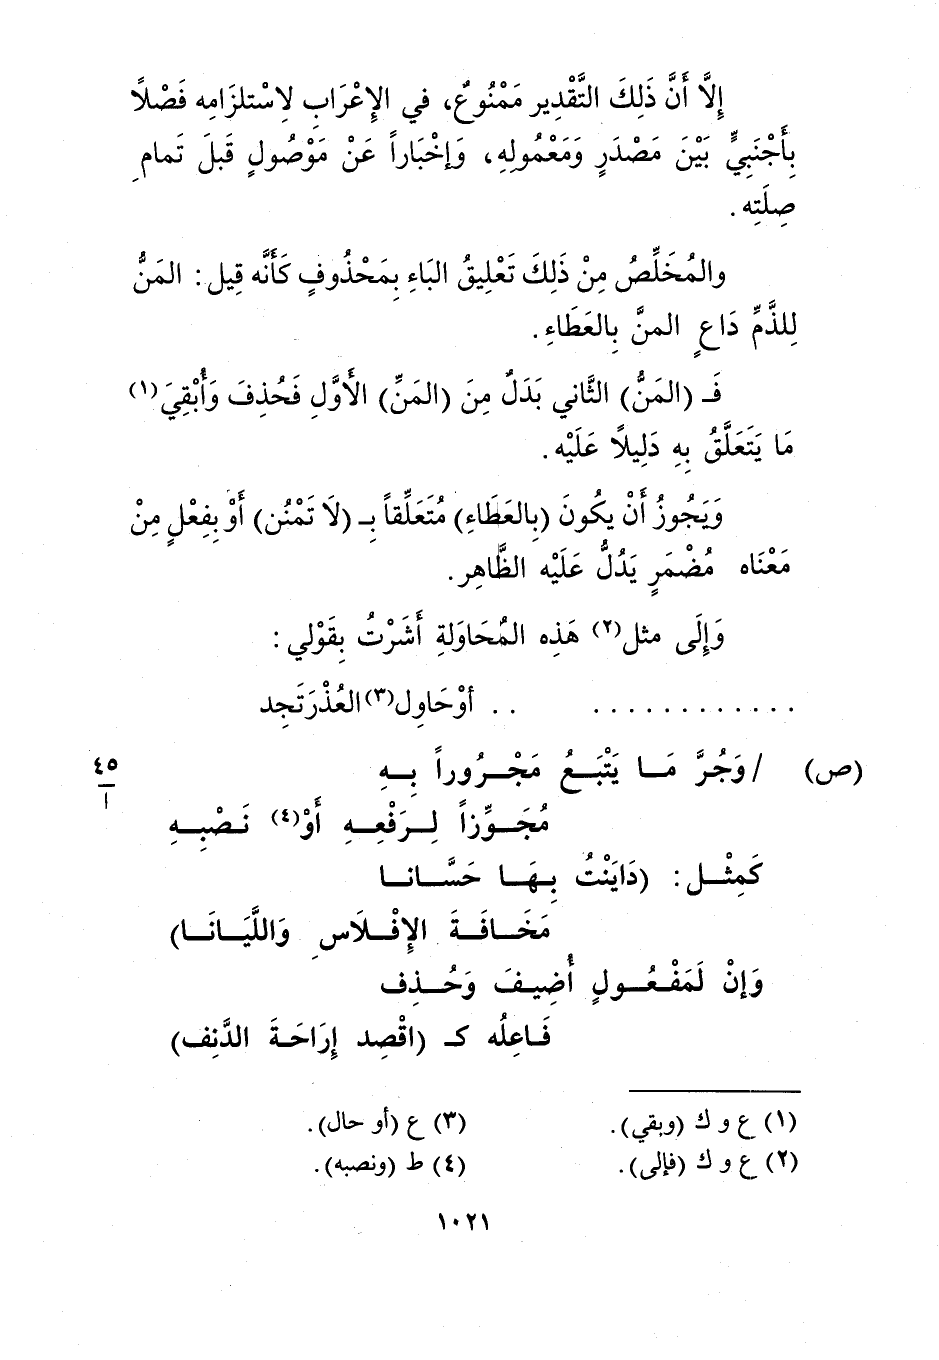 إلَّا أَنَّ ذَلِكَ التَّقْدِير مَمْنُوعٌ، في الإعْرَابِ لِاسْتلزَامِه فَصْلًا
بِأَجْنَبِيٍّ بَيْنَ مَصْدَرٍ وَمَعْمُولِهِ، وَإخْبَاراً عَنْ مَوْصُولٍ قَبلَ تَمامِ
صِلَتِه.
والمُخَلِّصُ مِنْ ذَلِكَ تَعْلِيقُ البَاءِ بِمَحْذُوفٍ كَأَنَّه قِيل: المَنُّ
لِلذَّمِّ دَاعٍ المنَّ بِالعَطَاءِ.
فَـ (المَنُّ) الثَّاني بَدَلٌ مِنَ (المَنِّ) الأَوَّلِ فَحُذِفَ وَأُبْقِيَ(١)
مَا يَتَعَلَّقُ بِهِ دَلِيلًا عَلَيْه.
وَيَجُوزُ أَنْ يكُونَ (بِالعَطَاءِ) مُتَعَلِّقاً بِـ (لَا تَمْنُن) أَوْ بِفِعْلٍ مِنْ
مَعْنَاه مُضْمَرٍ يَدُلُّ عَلَيْه الظَّاهِر.
وَإِلَى مثل(٢) هَذِه المُحَاوَلةِ أَشَرْتُ بِقَوْلي:
............ .. أوْحَاوِل(٣)العُذْرَتَجِد
(ص) /وَجُرَّ مَـا يَتْبَـعُ مَجْـرُوراً بِـهِ
٤٥
أ
مُجَـوِّزاً لِـرَفْعِـهِ أَوْ(٤) نَـصْبِـهِ
كَمِثْـل: (دَايَنْتُ بِـهَـا حَسَّـانـا
مَخَـافَـةَ الإفْـلَاسِ وَاللَّيَـانَـا)
وَإنْ لَمَفْـعُـولٍ أُضِيـفَ وَحُـذِف
فَـاعِلُه كـ (اقْصِد إِرَاحَـةَ الدَّنِف)
(١) ع و ك (وبقي).
(٢) ع و ك (فإلى).
(٣) ع (أو حال).
(٤) ط (ونصبه).
١٠٢١